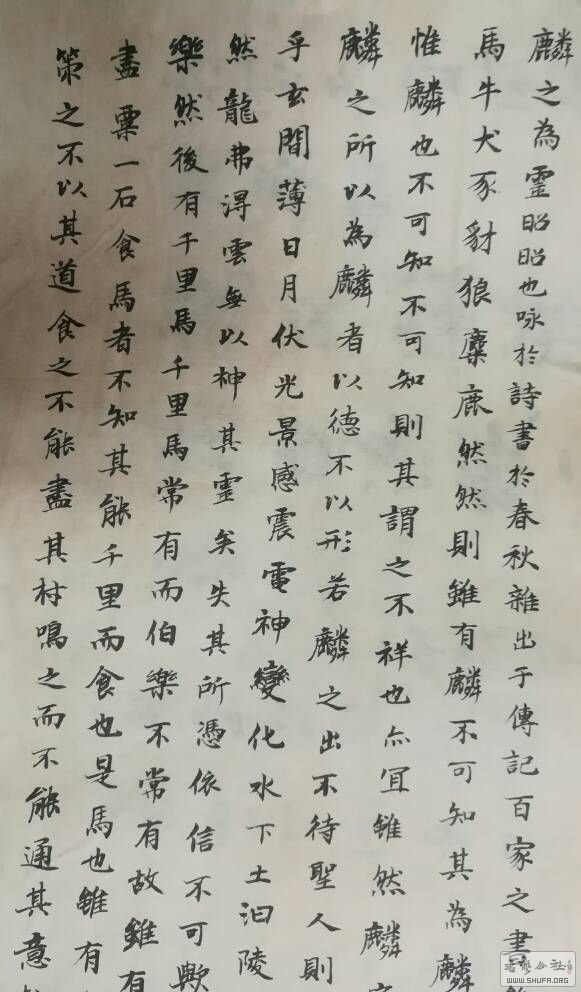 麟之為靈昭昭也咏於詩書於春秋雜出于傳記百家之書
馬牛犬豕豺狼麋鹿然然則雖有麟不可知其為麟
惟麟也不可知不可知則其謂之不祥也亦宜雖然麟
麟之所以為麟者以德不以形若麟之出不待聖人則
乎玄間薄日月伏光景感震電神變化水下土汩陵
然龍弗得雲無以神其靈矣失其所憑依信不可歟
樂然後有千里馬千里馬常有而伯樂不常有故雖有
盡粟一石食馬者不知其能千里而食也是馬也雖有
策之不以其道食之不能盡其材鳴之而不能通其意
書學公社
WWW.SHUFA.ORG